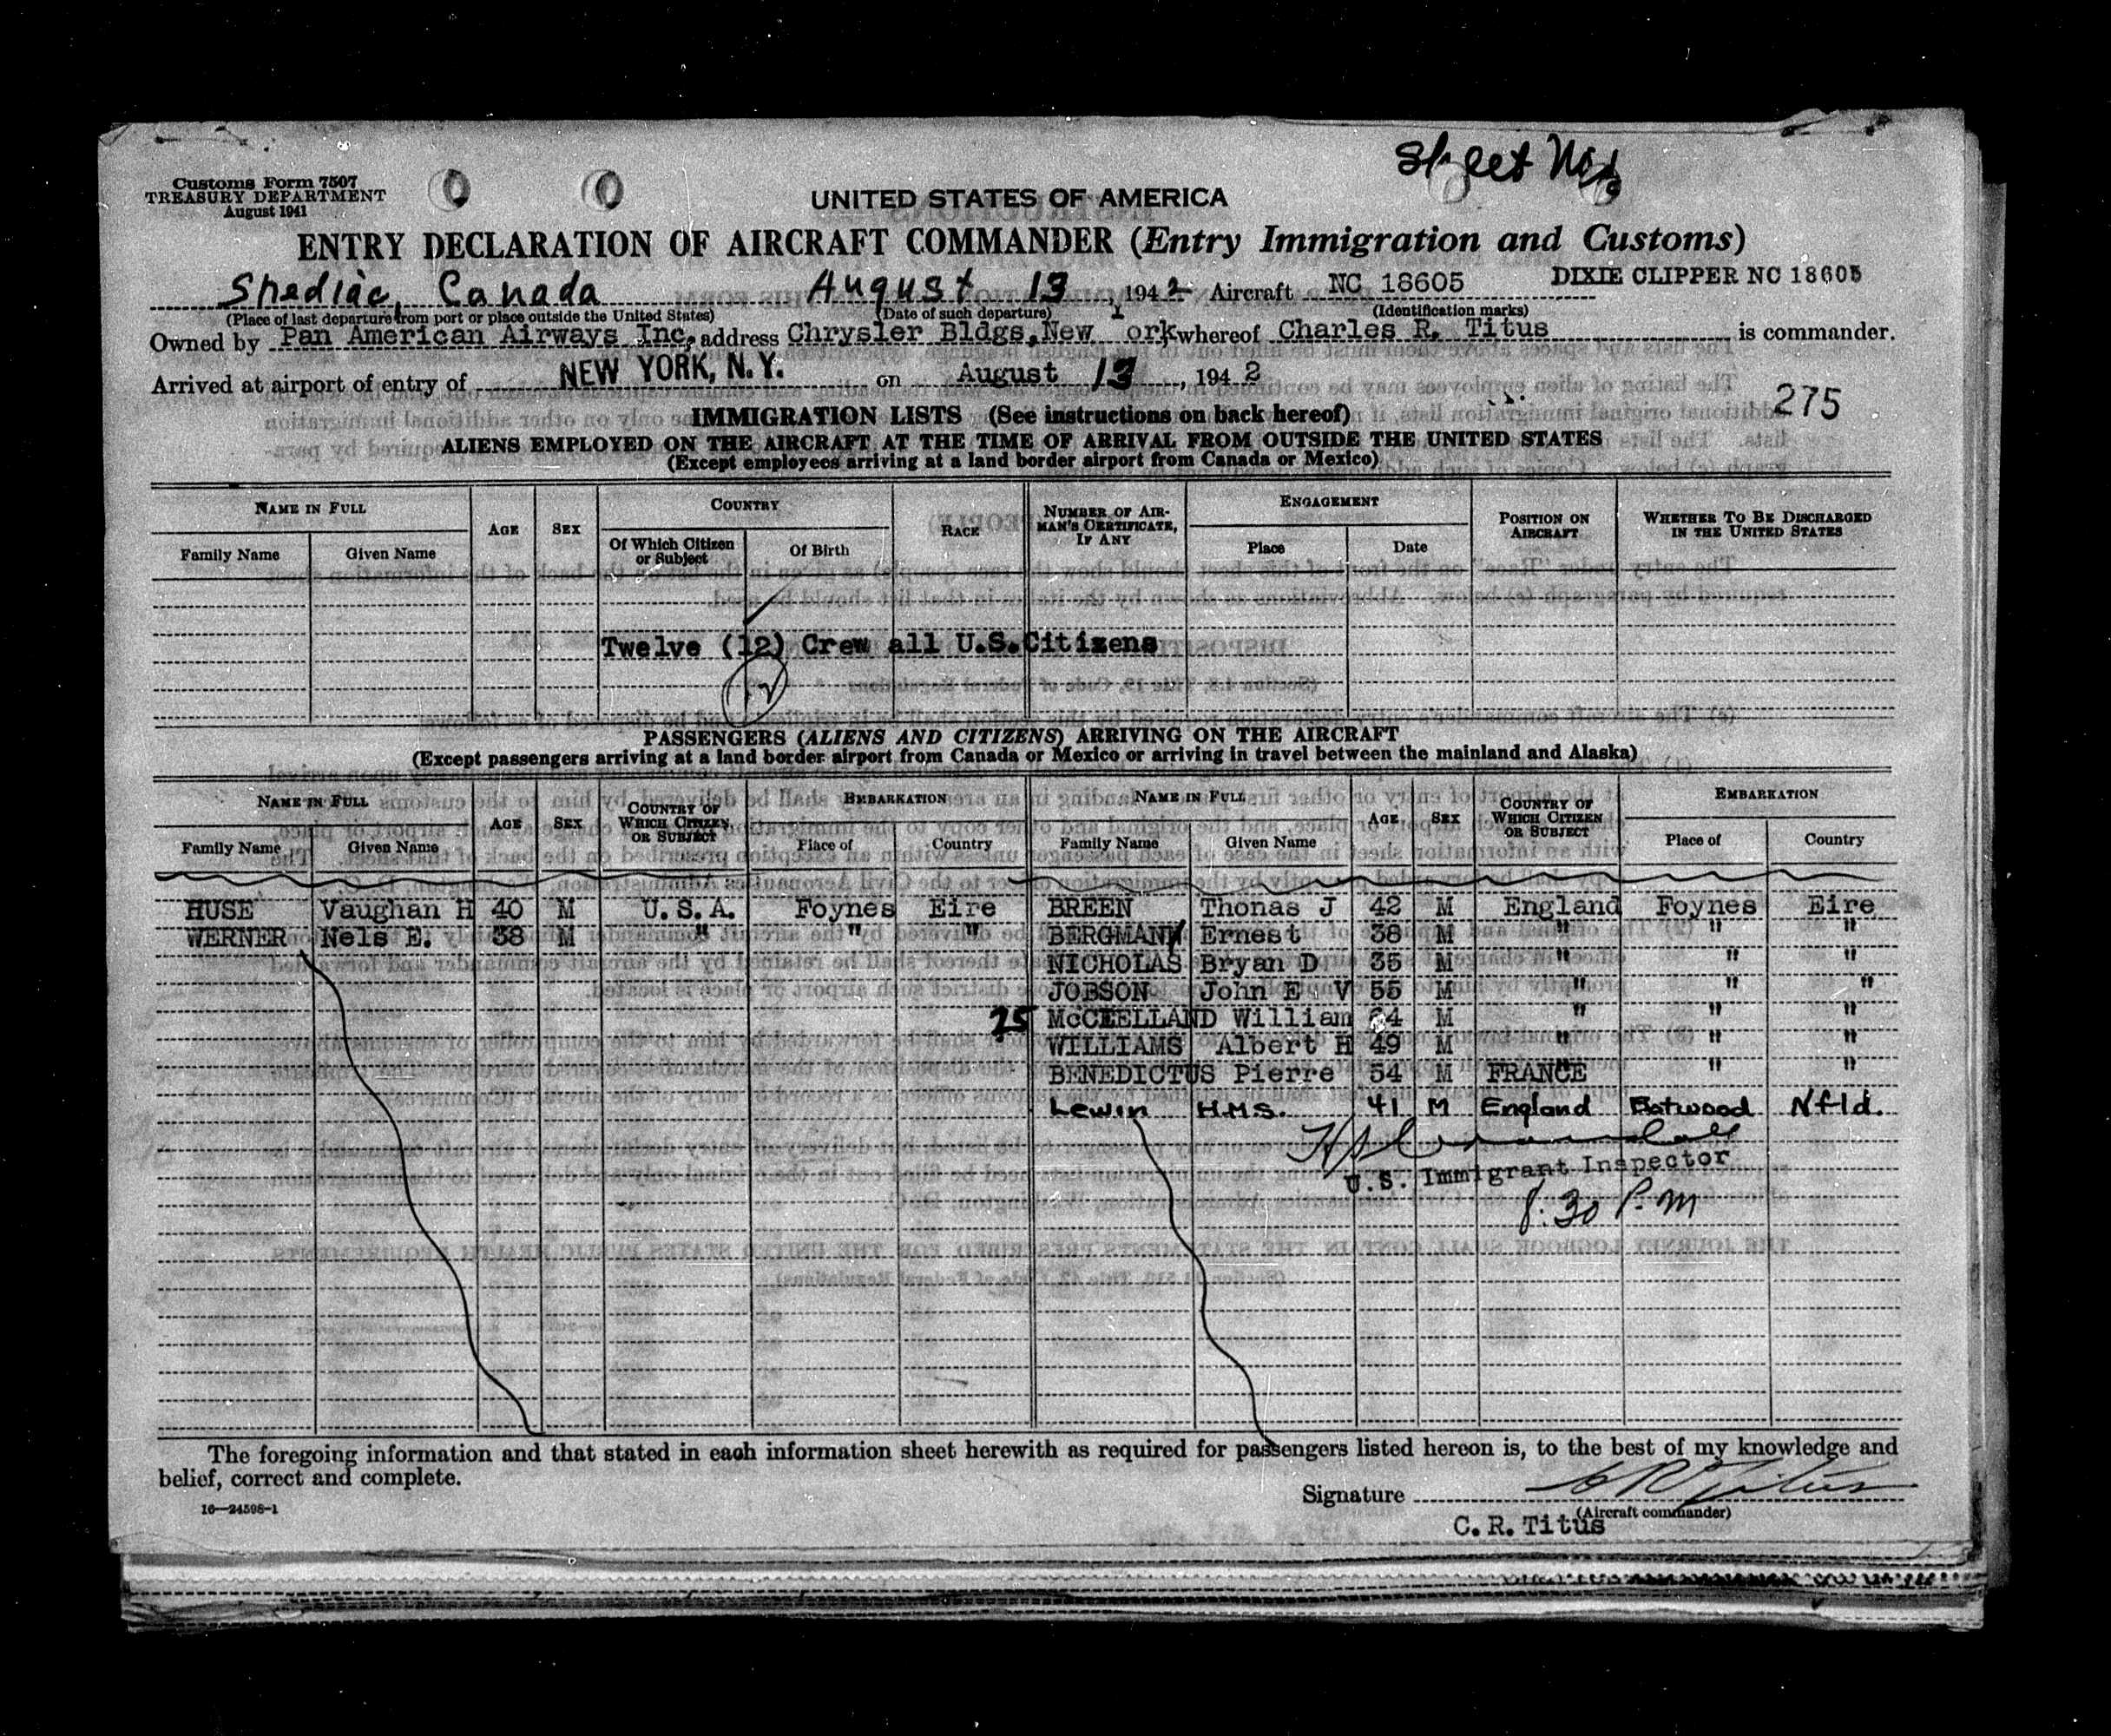 Customs Form 7507
TREASURY DEPARTMENT
August 1941
Sheet No.
UNITED STATES OF AMERICA
ENTRY DECLARATION OF AIRCRAFT COMMANDER (Entry Immigration and Customs)
Shediac, Canada August 13, 1942 Aircraft NC 18605 DIXIE CLIPPER NC 18605
(Place of last departure from port or place outside the United States) (Date of such departure) (Identification marks)
Owned by Pan American Airways Inc, address Chrysler Bldgs, New York whereof Charles R. Titus is commander.
Arrived at airport of entry of NEW YORK, N.Y. on August 13, 1942
275
IMMIGRATION LISTS (See instructions on back hereof)
ALIENS EMPLOYED ON THE AIRCRAFT AT THE TIME OF ARRIVAL FROM OUTSIDE THE UNITED STATES
(Except employees arriving at a land border airport from Canada or Mexico)
NAME IN FULL AGE SEX COUNTRY RACE NUMBER OF AIRMAN'S CERTIFICATE, IF ANY ENGAGEMENT POSITION ON AIRCRAFT WHETHER TO BE DISCHARGED IN THE UNITED STATES
Family Name Given Name Of Which Citizen or Subject Of Birth Place Date
Twelve (12) Crew all U.S.Citizens
12
PASSENGERS (ALIENS AND CITIZENS) ARRIVING ON THE AIRCRAFT
(Except passengers arriving at a land border airport from Canada or Mexico or arriving in travel between the mainland and Alaska)
NAME IN FULL AGE SEX COUNTRY OF WHICH CITIZEN OR SUBJECT EMBARKATION NAME IN FULL AGE SEX COUNTRY OF WHICH CITIZEN OR SUBJECT EMBARKATION
Family Name Given Name Place of Country Family Name Given Name Place of Country
HUSE Vaughan H 40 M U.S.A. Foynes Eire BREEN Thomas J 42 M England Foynes Eire
WERNER Nels E. 38 M " " " BERGMANN Ernest 38 M " " "
NICHOLAS Bryan D 35 M " " "
JOBSON John E V 55 M " " "
25 McCLELLAND William 4 M " " "
WILLIAMS Albert H 49 M " " "
BENEDICTUS Pierre 54 M FRANCE " "
Lewin H.M.S. 41 M England Botwood Nfld.
U.S. Immigrant Inspector
8:30 P.M
The foregoing information and that stated in each information sheet herewith as required for passengers listed hereon is, to the best of my knowledge and
belief, correct and complete.
Signature C R Titus
16—24598-1
(Aircraft commander)
C.R.Titus